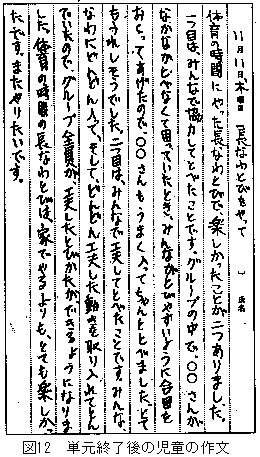 11月11日木曜日 長なわとびをやって 氏名
体育の時間にやった長なわとびで、楽しかったことが二つありました。
一つ目は、みんなで協力してとべたことです。グループの中で、○○さんが
なかなかとべなくて困っていたとき、みんながとびやすいように合図を
おくってあげたので、○○さんもうまく入ってちゃんととべました。とて
もうれしそうでした。二つ目は、みんなで工夫してとべたことです。みんな、
なわにどんどん入って、そして、どんどん工夫した動きを取り入れてとん
でいたので、グループ全員が、工夫したとびかたができるようになりま
した。体育の時間の長なわとびは、家でやるよりも、とても楽しかっ
たです。またやりたいです。
図12 単元終了後の児童の作文